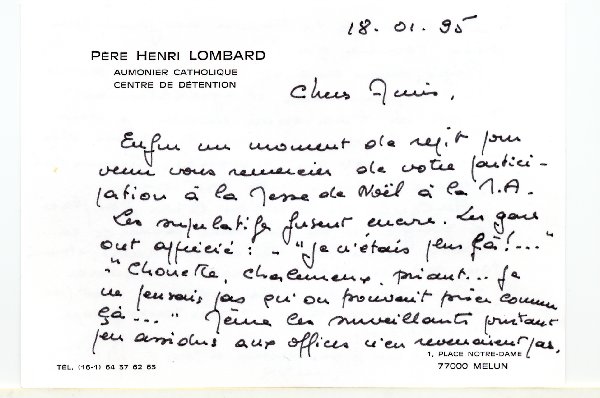 18.01.95
PERE HENRI LOMBARD
AUMONIER CATHOLIQUE
CENTRE DE DÉTENTION
Chers Amis,
Enfin un moment de répit pour
venir vous remercier de votre partici-
pation à la Messe de Noël à la M.A.
Les superlatifs fusent encore. Les gars
ont apprécié : - "Je n'étais pas çà!..."
-"Chouette, chaleureux, priant... Je
ne pensais pas qu'on pouvait prier comme
çà...." Même les surveillants pourtant
peu assidus aux offices n'en revenaient pas.
1, PLACE NOTRE-DAME
TÉL. (16-1) 64 37 62 65
77000 MELUN